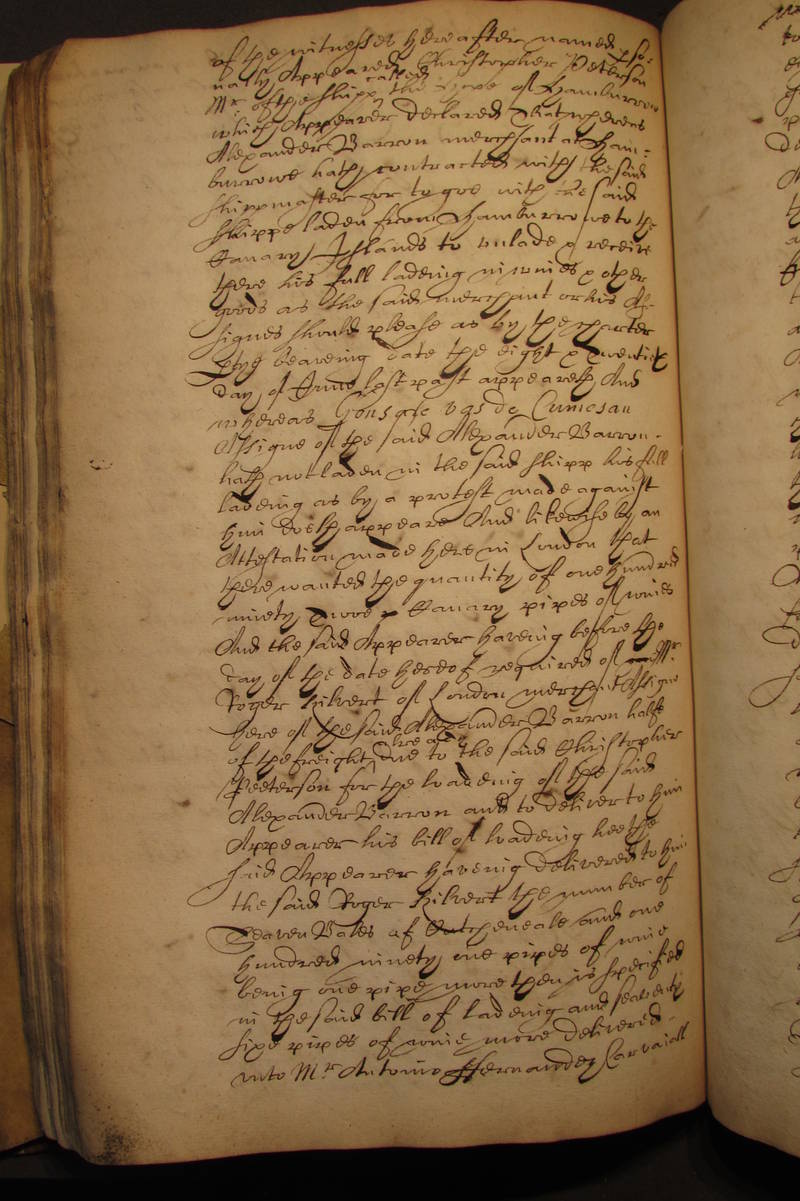 of the witnesses hereafter named pso:
nally Appeared Christopher Peterson
Mr. of the shipp called the of Hamburrow
which Appearer declared that whereas
Alexander Barron merchant at Ham:
burrowe hath contracted with the said
shippmaster for to goe with the said
shippe laden from Hamburrowe to the
Canary Islands to unlade & receive
there his full ladeing in wines & other
goods as the said merchant or his As:
signes should please as by the charter
ptye beareing date the eight & twentieth
day of June last past appeareth And
whereas Gonsalo vas de Cumesan
Assigne of the said Alexander Barron
hath not laden in the said shipp his full
ladeing as by a protest made against
him doeth appeare And likewise by an
Attestation made here in London that
there wanted the quantity of one hundred
ninety Twoe Canary pipes of wines
And the said Appearer haveing before the
day of the date hereof required of Mr.
Roger Kilvert of London merchant Assigne
here of the said Alexander Barron halfe
of the freight due to the said Christopher
Peeterson for the loadeing of the said
Alexander Barron and to deliver to him
Appearer his bill of loadeing hee the
said Appearer haveing delivered to him
the said Roger Kilvert the number of
Seaven Bales of Cutcheneale and one
hundred ninety one pipes of wine
being one pipe more then is specified
in the said bill of ladeing and seaventy
sixe pipes of wine more delivered
unto Mr. Antonio Ffernandez Carvaiall